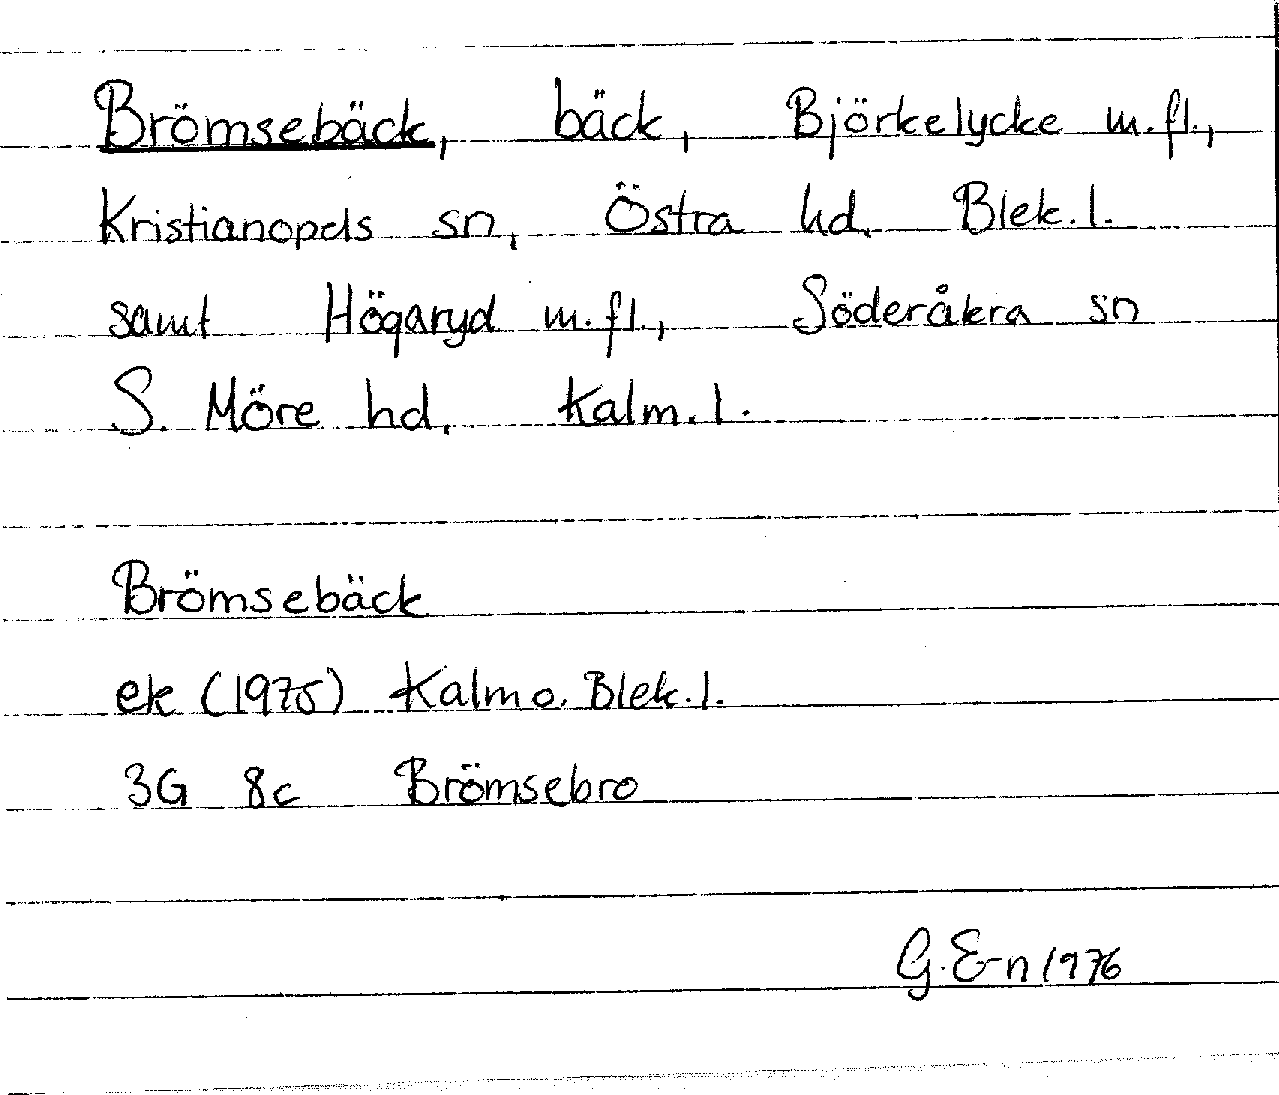 Brömsebäck, bäck, Björkelycke m.fl.,
Kristianopels sn, Östra hd, Blek.l.
samt Högaryd m.fl., Söderåkra sn
S. Möre hd, Kalm.l.
Brömsebäck
ek (1975) Kalm o. Blek.l.
3G 8c Brömsebro
G.E-n 1976